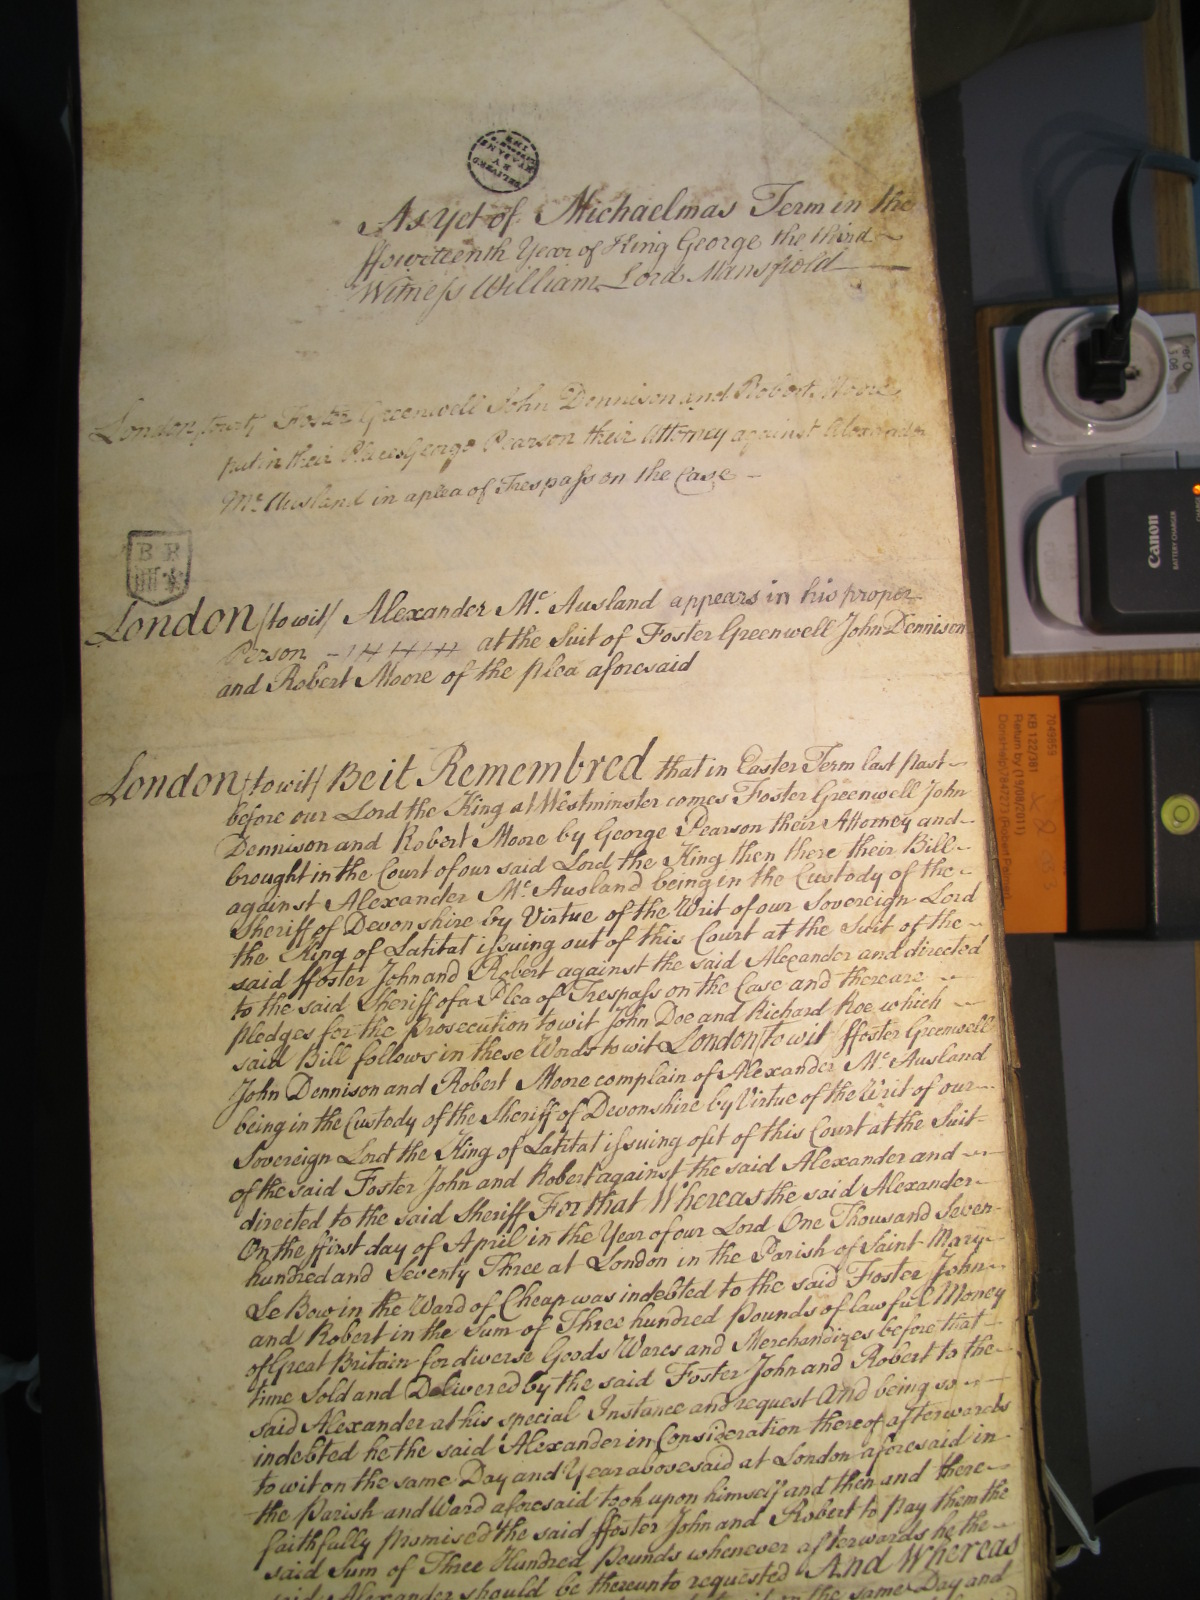 DELIVERED
BY
STAPLES
INN
As Yet of Michaelmas Term in the
ffourteenth Year of King George the third
Witness William Lord Mansfield
London /towit/ Foster Greenwell John Dennison and Robert Moore
put in their Place George Pearson their Attorney against Alexander
Mc. Ausland in a plea of Trespass on the Case
London /to wit/ Alexander Mc. Ausland appears in his proper
Person at the Suit of Foster Greenwell John Dennison
and Robert Moore of the plea aforesaid
London /to wit/ Be it Remembred that in Easter Term last past
before our Lord the King at Westminster comes Foster Greenwell John
Dennison and Robert Moore by George Pearson their Attorney and
brought in the Court of our said Lord the King then there their Bill
against Alexander Mc. Ausland being in the Custody of the
Sheriff of Devonshire by Virtue of the Writ of our Sovereign Lord
the King of Latitat issuing out of this Court at the Suit of the
said ffoster John and Robert against the said Alexander and directed
to the said Sheriff of a Plea of Trespass on the Case and there are
pledges for the prosecution to wit John Doe and Richard Roe which
said Bill follows in these Words to wit London /to wit/ ffoster Greenwell
John Dennison and Robert Moore complain of Alexander Mc. Ausland
being in the Custody of the Sheriff of Devonshire by Virtue of the Writ of our
Sovereign Lord the King of Latitat issuing out of this Court at the Suit
of the said Foster John and Robert against the said Alexander and
directed to the said Sheriff For that Whereas the said Alexander
On the ffirst day of April in the Year of our Lord One Thousand Seven
hundred and Seventy Three at London in the Parish of Saint Mary
Le Bow in the Ward of Cheap was indebted to the said Foster John
and Robert in the Sum of Three hundred Pounds of lawful Money
of Great Britain for diverse Goods Wares and Merchandizes before that
time Sold and Delivered by the said Foster John and Robert to the
said Alexander at his special Instance and request And being so
indebted he the said Alexander in Consideration thereof afterwards
to wit on the same Day and Year abovesaid at London aforesaid in
the Parish and Ward aforesaid took upon himself and then and there
faithfully promised the said ffoster John and Robert to pay them the
said Sum of Three Hundred Pounds whenever afterwards he the
said Alexander should be thereunto requested And Whereas
the same Day and
Canon
BATTERY CHARGER
7049959
KB 122/381
Return by (19/08/2011)